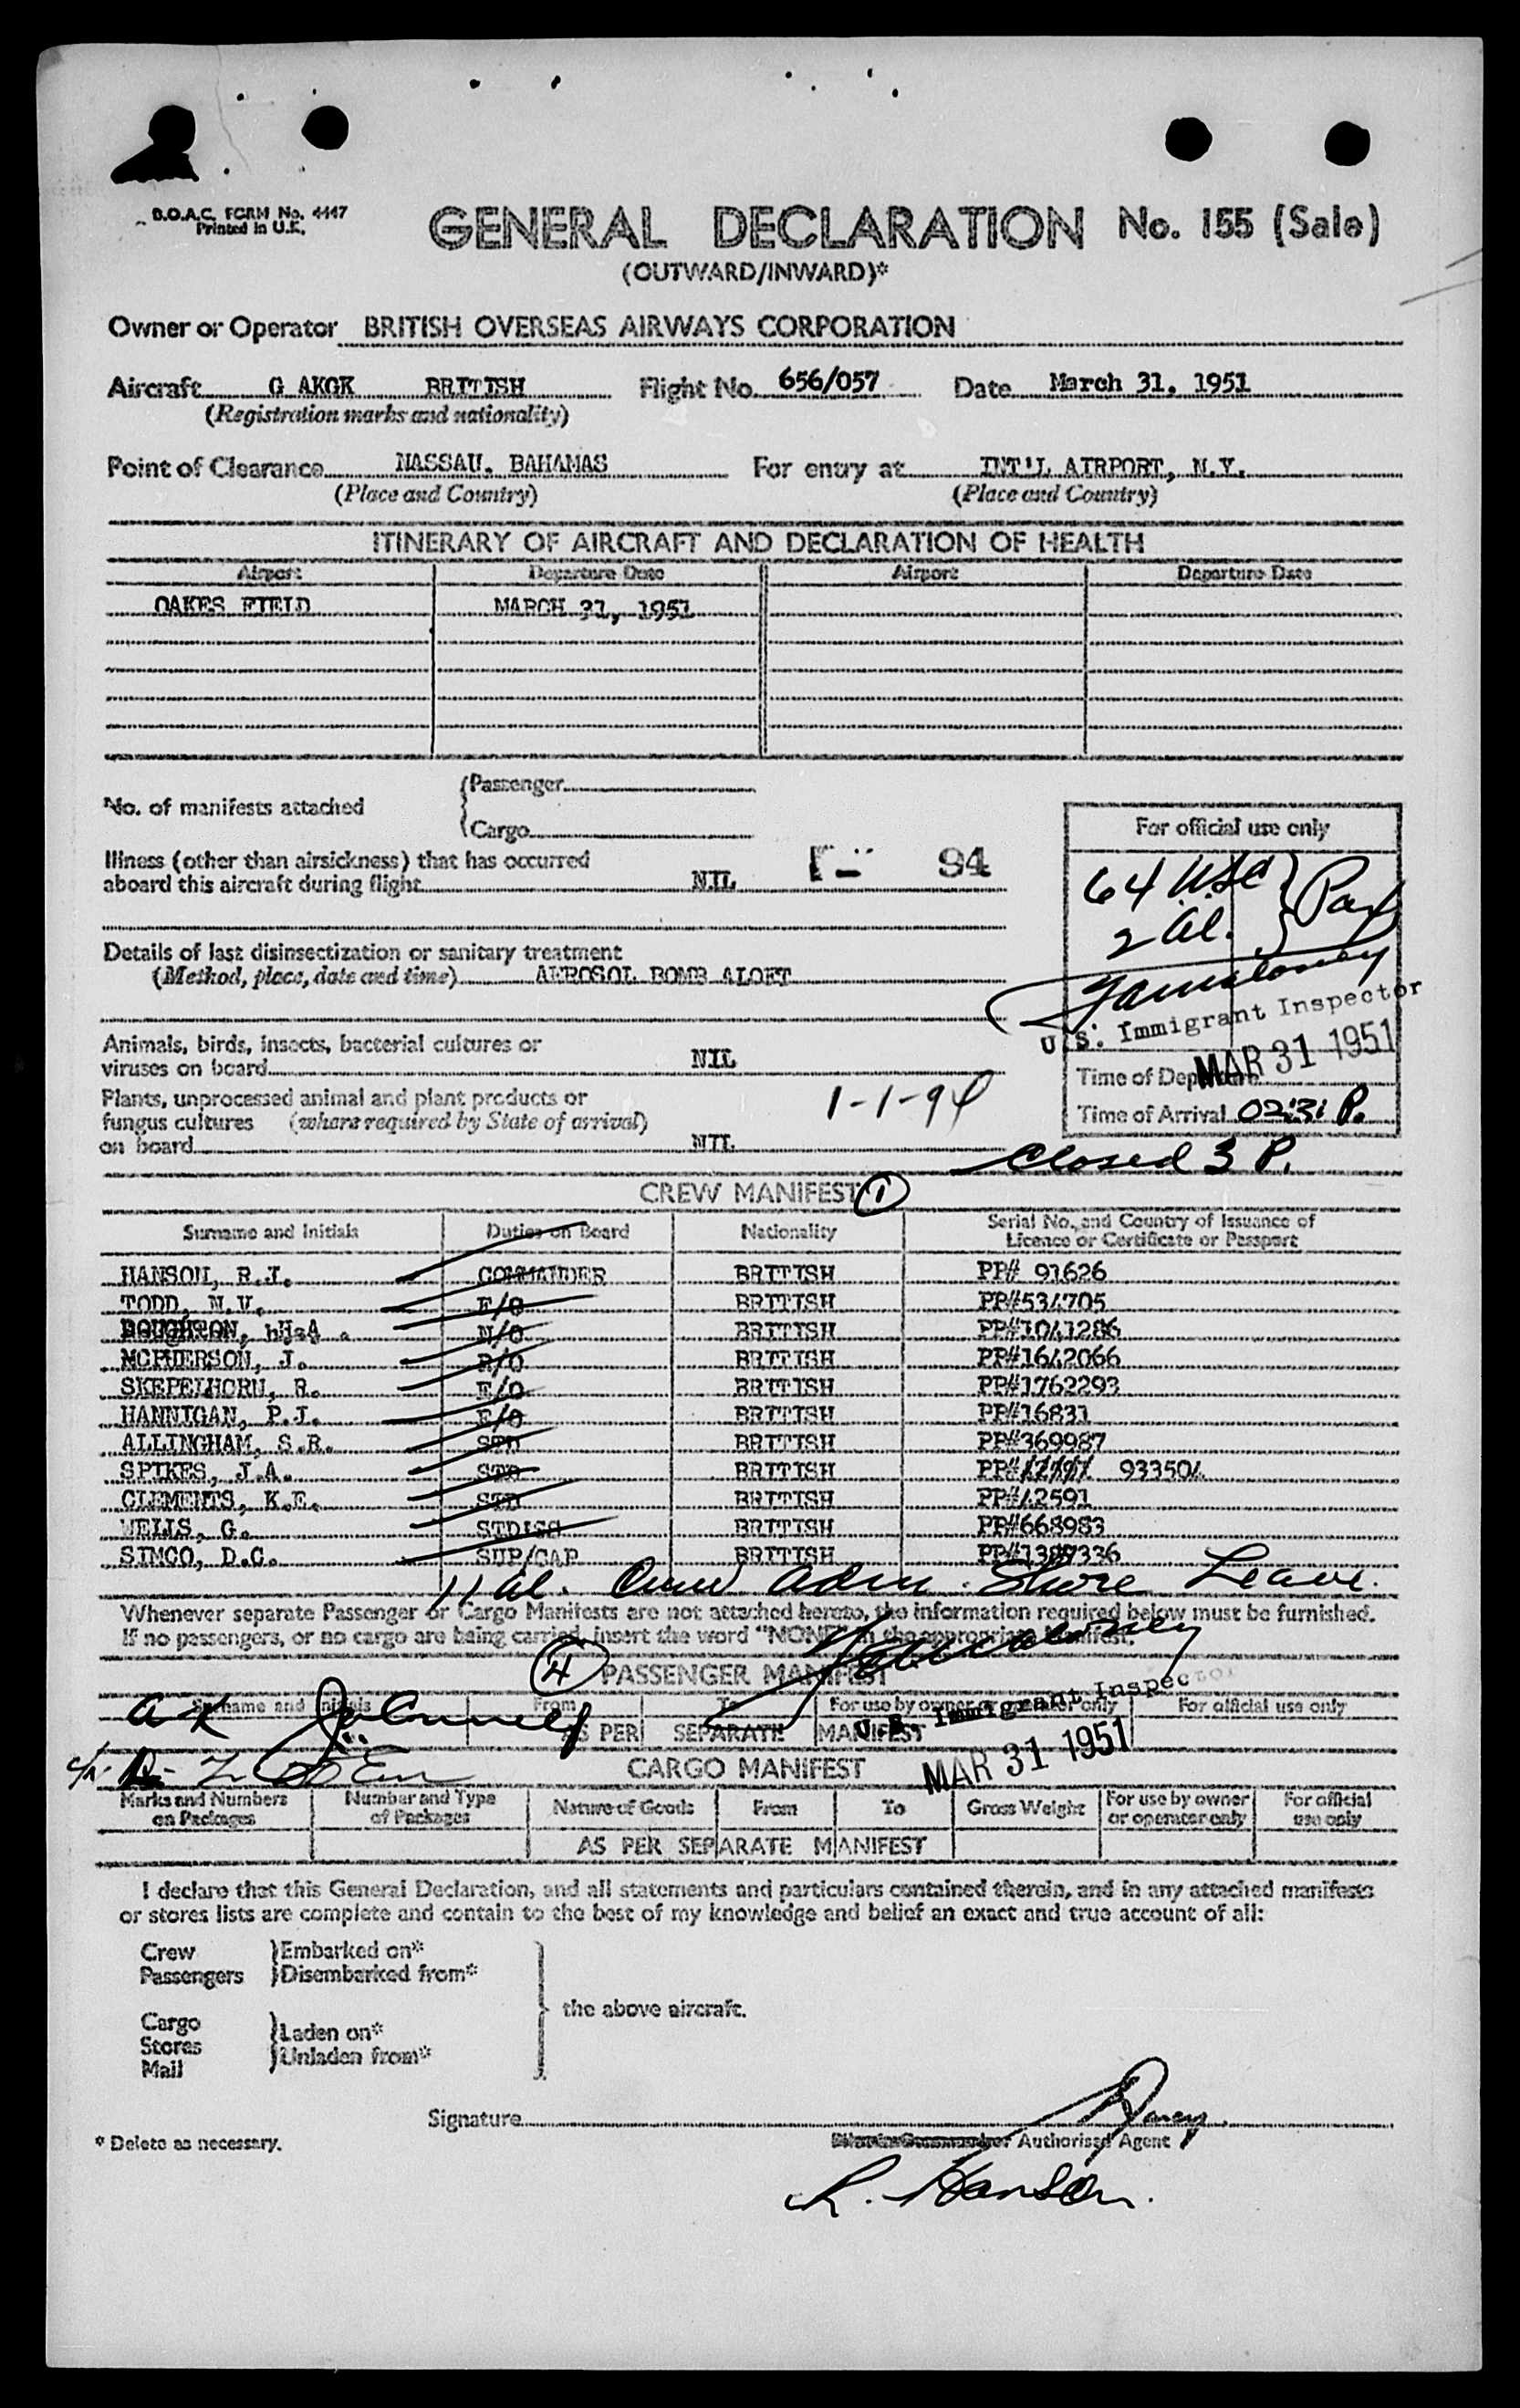 B.O.A.C. FORM No. 4447
Printed in U.K.
GENERAL DECLARATION No. 155 (Sale)
(OUTWARD/INWARD)*
Owner or Operator BRITISH OVERSEAS AIRWAYS CORPORATION
Aircraft G AKGK BRITISH Flight No. 656/057 Date March 31, 1951
(Registration marks and nationality)
Point of Clearance NASSAU, BAHAMAS For entry at INT'L AIRPORT, N.Y.
(Place and Country) (Place and Country)
ITINERARY OF AIRCRAFT AND DECLARATION OF HEALTH
Airport Departure Date Airport Departure Date
OAKES FIELD MARCH 31, 1951
No. of manifests attached
Passenger
Cargo
For official use only
Illness (other than airsickness) that has occurred
aboard this aircraft during flight NIL 94
64 USC
2 Al. Pax
Details of last disinsectization or sanitary treatment
(Method, place, date and time) AEROSOL BOMB ALOFT
U.S. Immigrant Inspector
MAR 31 1951
Animals, birds, insects, bacterial cultures or
viruses on board NIL
Time of Departure
Plants, unprocessed animal and plant products or
fungus cultures (where required by State of arrival)
on board NIL
1-1-94
Time of Arrival 02:31 P.
Closed 3 P.
CREW MANIFEST 1
Surname and Initials Duties on Board Nationality Serial No., and Country of Issuance of
Licence or Certificate or Passport
HANSON, R.J. COMMANDER BRITISH PP# 91626
TODD, N.V. F/O BRITISH PP#534705
BOUGHTON, H.A. N/O BRITISH PP#1041286
MCPHERSON, J. R/O BRITISH PP#1642066
SKEPELHORN, R. E/O BRITISH PP#1762293
HANNIGAN, P.J. E/O BRITISH PP#16831
ALLINGHAM, S.R. STD BRITISH PP#369987
SPIKES, J.A. STD BRITISH PP# 933504
CLEMENTS, K.E. STD BRITISH PP#42591
WELLS, G. STDISS BRITISH PP#668983
SIMCO, D.C. SUP/CAP BRITISH PP#1387336
11 Al. Crew Adm. Shore Leave.
Whenever separate Passenger or Cargo Manifests are not attached hereto, the information required below must be furnished.
If no passengers, or no cargo are being carried, insert the word "NONE" in the appropriate Manifest.
4 PASSENGER MANIFEST
Surname and Initials From To For use by owner or operator only For official use only
AS PER SEPARATE MANIFEST
U.S. Immigrant Inspector
MAR 31 1951
CARGO MANIFEST
Marks and Numbers on Packages Number and Type of Packages Nature of Goods From To Gross Weight For use by owner or operator only For official use only
AS PER SEPARATE MANIFEST
I declare that this General Declaration, and all statements and particulars contained therein, and in any attached manifests
or stores lists are complete and contain to the best of my knowledge and belief an exact and true account of all:
Crew
Passengers
Embarked on*
Disembarked from*
the above aircraft.
Cargo
Stores
Mail
Laden on*
Unladen from*
Signature
* Delete as necessary.
Authorised Agent
R. Hanson.